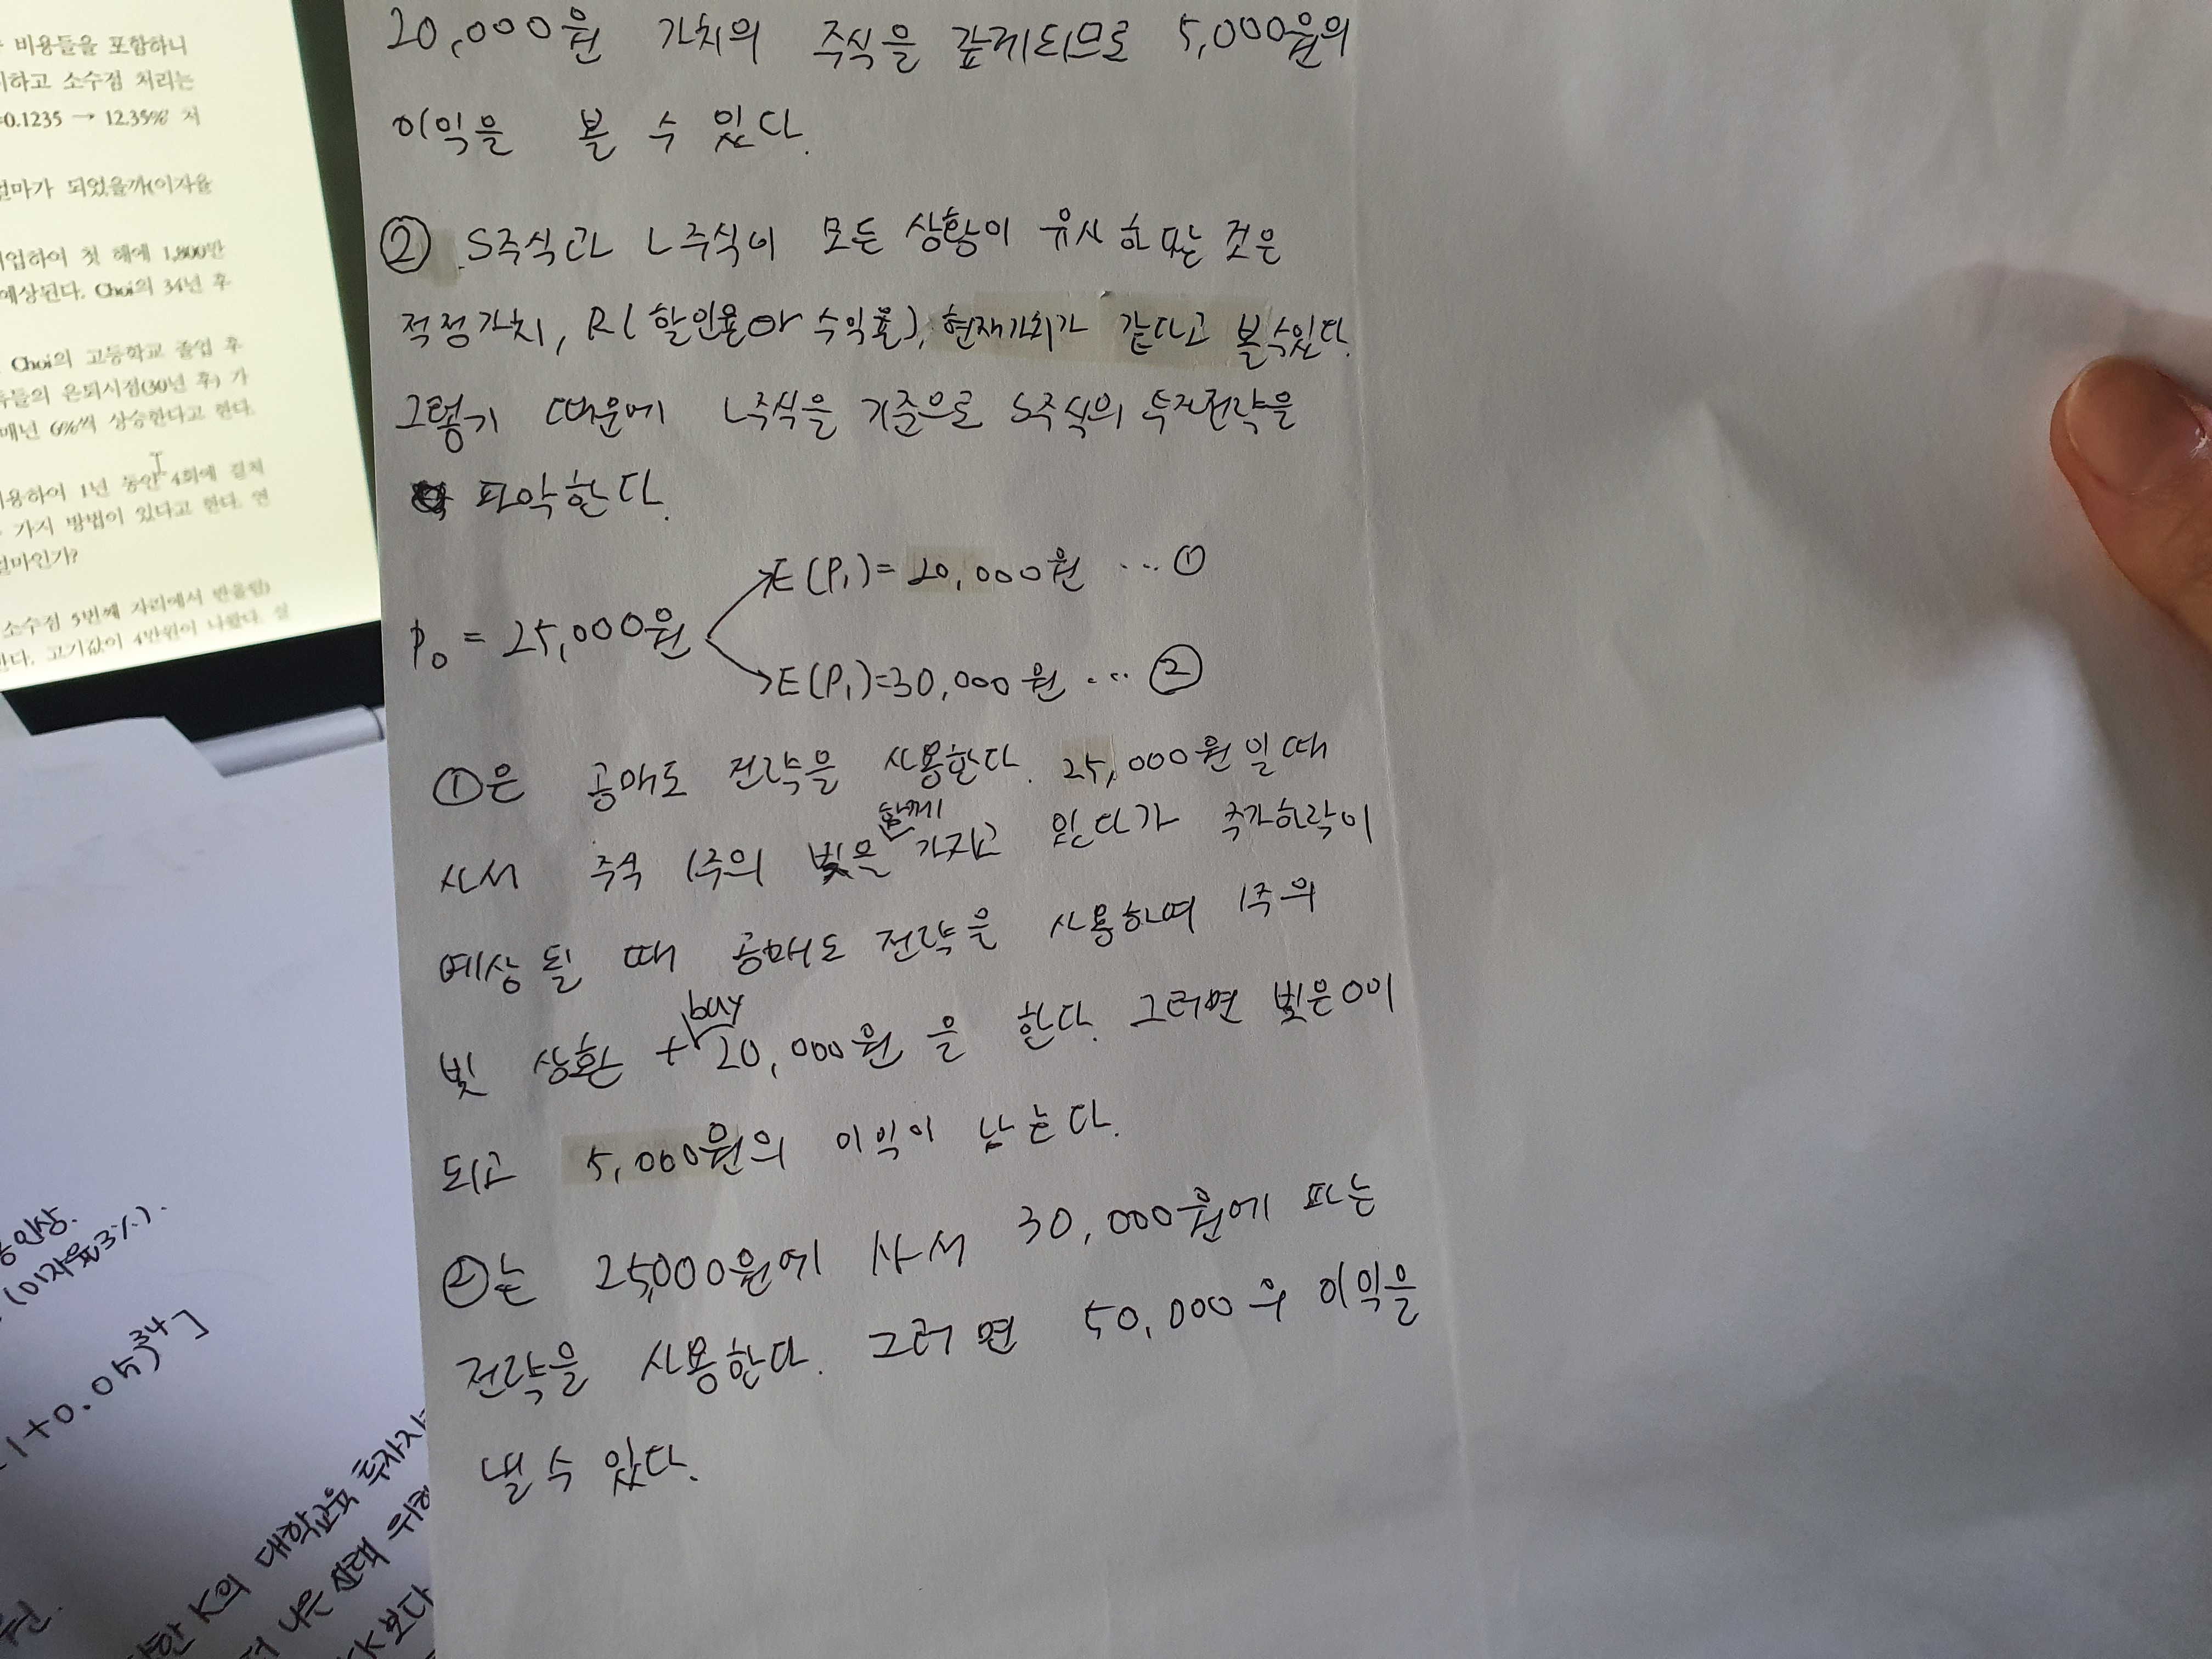 비용들을 포함하니
하고 소수점 처리는
=0.1235 → 12.35% 처
얼마가 되었을까(이자율
입하여 첫 해에 1,800만
예상된다. Choi의 34년 후
Choi의 고등학교 졸업 후
들의 은퇴시점(30년 후) 가
매년 6%씩 상승한다고 한다.
용하여 1년 동안 4회에 걸쳐
가지 방법이 있다고 한다. 연
얼마인가?
소수점 5번째 자리에서 반올림)
한다. 고기값이 4만원이 나왔다.
20,000원 가치의 주식을 갚게되므로 5,000원의
이익을 볼 수 있다.
② S주식과 L주식이 모든 상황이 유사하다는 것은
적정가치, R(할인율 or 수익률), 현재가치가 같다고 볼수있다.
그렇기 때문에 L주식을 기준으로 S주식의 투자전략을
파악한다.
E(P₁)=20,000원 ... ①
P₀ = 25,000원
E(P₁)=30,000원 ... ②
①은 공매도 전략을 사용한다. 25,000원일때
사서 주식 1주의 빚을 함께 가지고 있다가 주가하락이
예상될 때 공매도 전략을 사용하여 1주의
빚 상환 + buy 20,000원을 한다. 그러면 빚은 0이
되고 5,000원의 이익이 남는다.
②는 25,000원에 사서 30,000원에 파는
전략을 사용한다. 그러면 50,000의 이익을
낼 수 있다.
(이자율3%).
1+0.05)³⁴]
K의 대학교육 투자
나은 선택
K보다